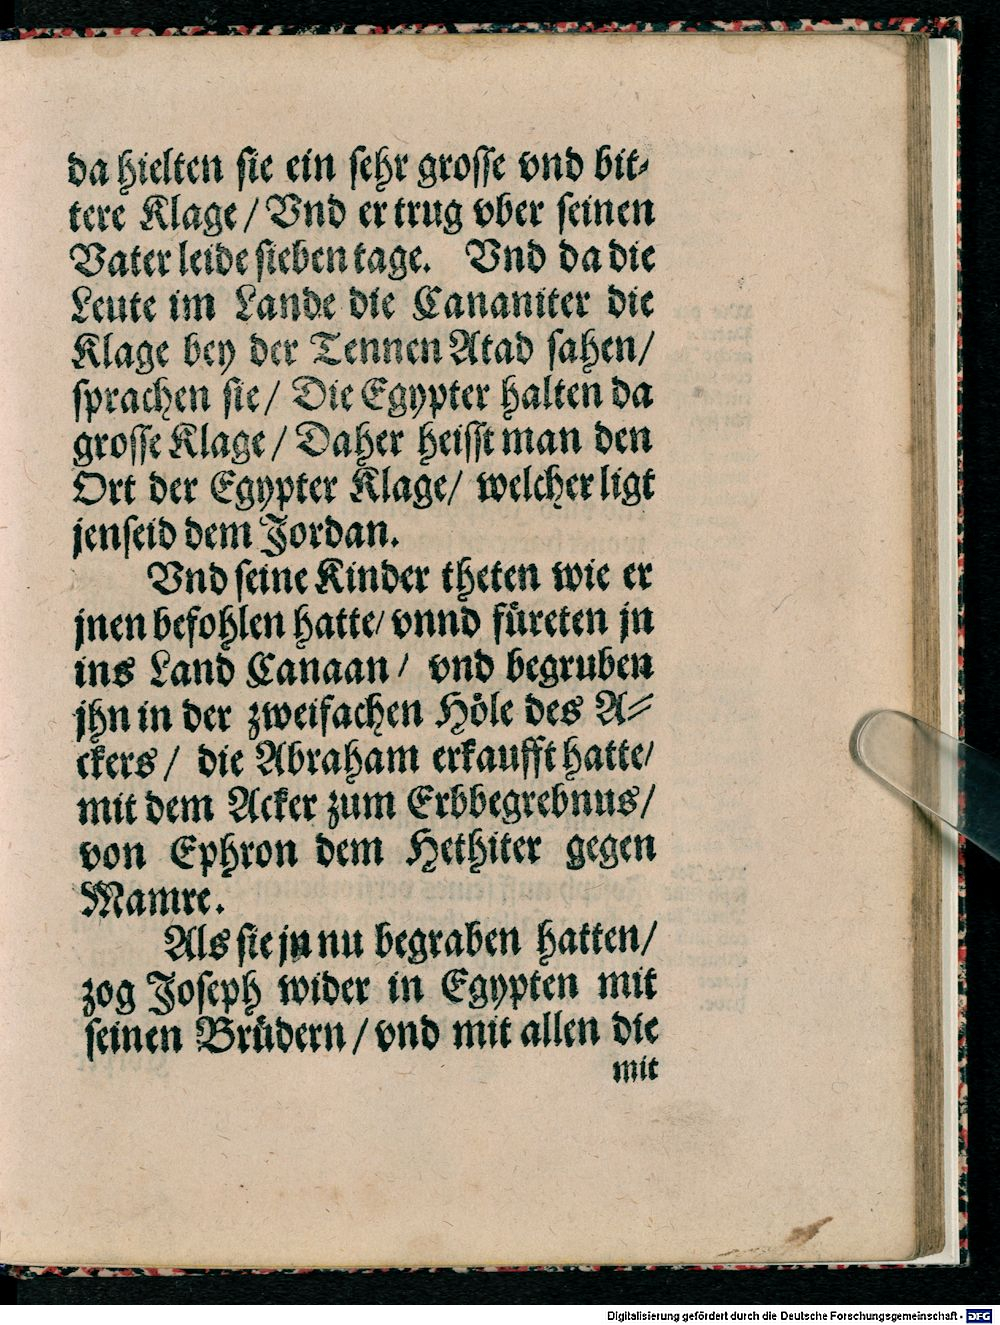 da hielten sie ein sehr grosse vnd bit-
tere Klage / Vnd er trug vber seinen
Vater leide sieben tage. Vnd da die
Leute im Lande die Cananiter die
Klage bey der Tennen Atad sahen /
sprachen sie / Die Egypter halten da
grosse Klage / Daher heisst man den
Ort der Egypter Klage / welcher ligt
jenseid dem Jordan.
Vnd seine Kinder theten wie er
jnen befohlen hatte / vnnd füreten jn
ins Land Canaan / vnd begruben
jhn in der zweifachen Höle des A-
ckers / die Abraham erkaufft hatte /
mit dem Acker zum Erbbegrebnus /
von Ephron dem Hethiter gegen
Mamre.
Als sie jn nu begraben hatten /
zog Joseph wider in Egypten mit
seinen Brüdern / vnd mit allen die
mit
Digitalisierung gefördert durch die Deutsche Forschungsgemeinschaft - DFG